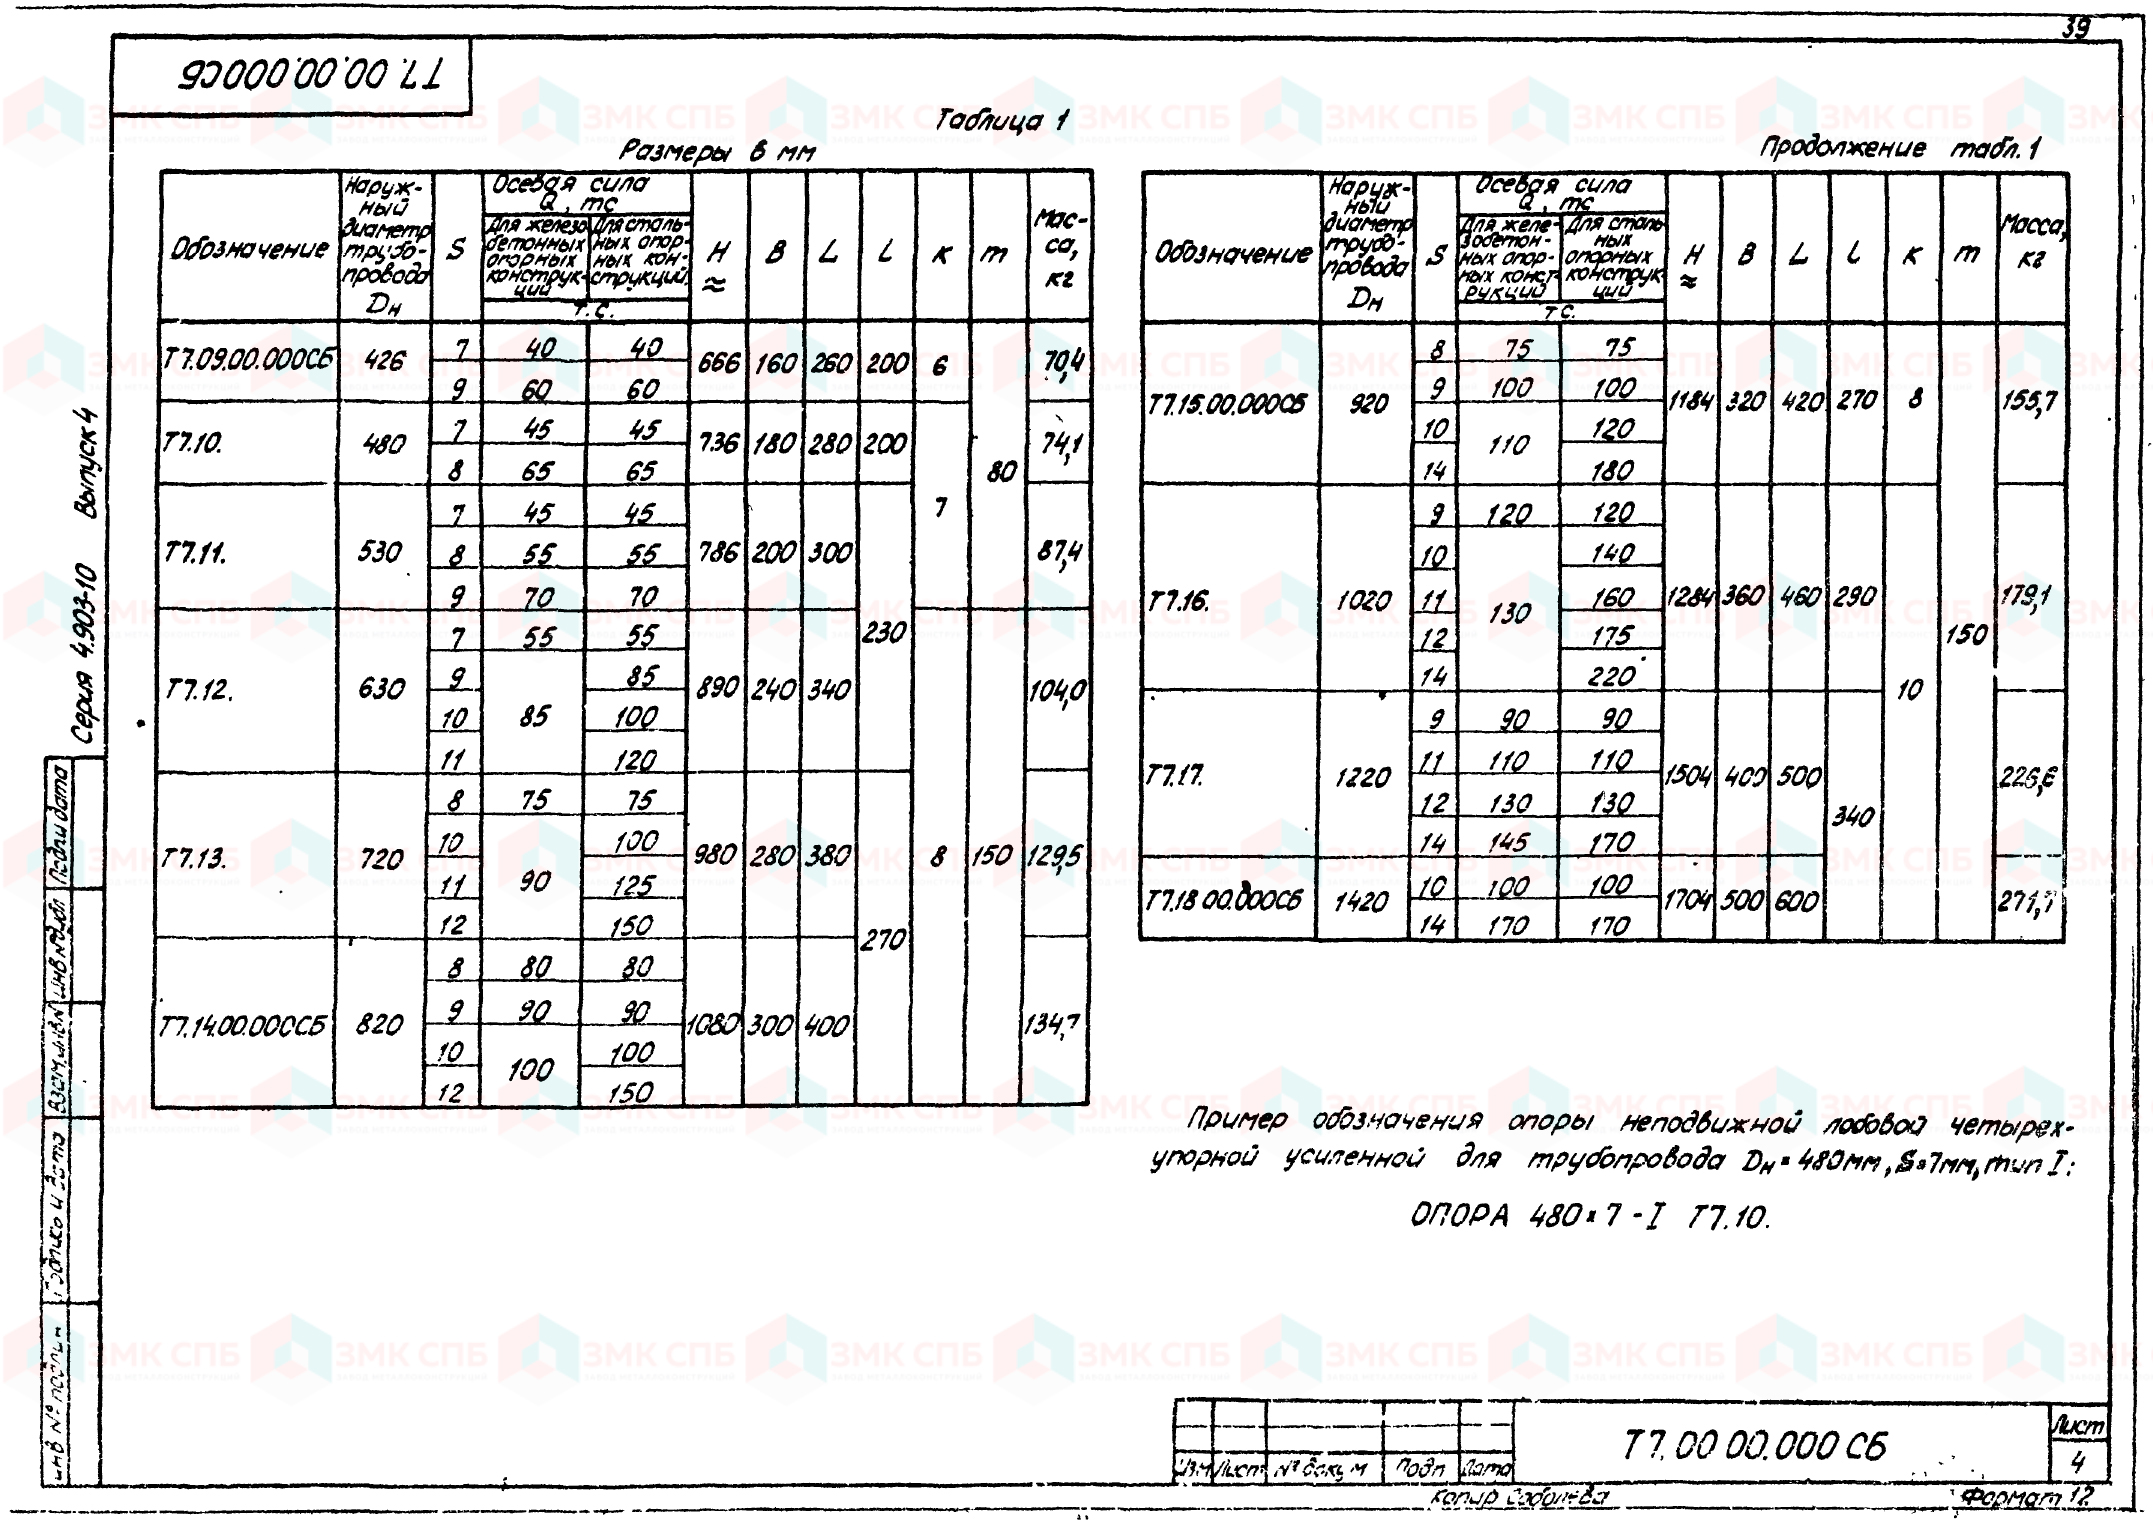 39
Т7.00.00.000СБ
Таблица 1
Размеры в мм
Обозначение | Наруж-ный диаметр трубо-провода Dн | S | Осевая сила Q, тс | H ≈ | B | L | l | к | m | Мас-са, кг
Для железо бетонных опорных конструк-ций | Для сталь-ных опор-ных кон-струкций.
т.с.
Т7.09.00.000СБ | 426 | 7 | 40 | 40 | 666 | 160 | 260 | 200 | 6 | 80 | 70,4
9 | 60 | 60
Т7.10. | 480 | 7 | 45 | 45 | 736 | 180 | 280 | 200 | 7 | 74,1
8 | 65 | 65
Т7.11. | 530 | 7 | 45 | 45 | 786 | 200 | 300 | 230 | 87,4
8 | 55 | 55
9 | 70 | 70
Т7.12. | 630 | 7 | 55 | 55 | 890 | 240 | 340 | 8 | 150 | 104,0
9 | 85 | 85
10 | 100
11 | 120
Т7.13. | 720 | 8 | 75 | 75 | 980 | 280 | 380 | 270 | 129,5
10 | 90 | 100
11 | 125
12 | 150
Т7.14.00.000СБ | 820 | 8 | 80 | 80 | 1080 | 300 | 400 | 134,7
9 | 90 | 90
10 | 100 | 100
12 | 150
Продолжение табл. 1
Обозначение | Наруж-ный диаметр трубо-провода Dн | S | Осевая сила Q, тс | H ≈ | B | L | l | к | m | Масса, кг
Для желе-зобетон-ных опор-ных конст-рукций | Для сталь ных опорных конструк ций
тс.
Т7.15.00.000СБ | 920 | 8 | 75 | 75 | 1184 | 320 | 420 | 270 | 8 | 150 | 155,7
9 | 100 | 100
10 | 110 | 120
14 | 180
Т7.16. | 1020 | 9 | 120 | 120 | 1284 | 360 | 460 | 290 | 10 | 179,1
10 | 130 | 140
11 | 160
12 | 175
14 | 220
Т7.17. | 1220 | 9 | 90 | 90 | 1504 | 400 | 500 | 340 | 226,6
11 | 110 | 110
12 | 130 | 130
14 | 145 | 170
Т7.18 00.000СБ | 1420 | 10 | 100 | 100 | 1704 | 500 | 600 | 271,7
14 | 170 | 170
Пример обозначения опоры неподвижной лобовой четырех-
упорной усиленной для трубопровода Dн=480мм, S=7мм, тип I:
ОПОРА 480×7-I Т7.10.
Серия 4.903-10 Выпуск 4
Подп и дата
Инв № дубл
Взам. инв №
Подпись и дата
Инв № подлин
Изм Лист № докум Подп Дата
Т7.00 00.000 СБ
Лист
4
Копир Соболева
Формат 12
ЗМК СПБ
ЗАВОД МЕТАЛЛОКОНСТРУКЦИЙ